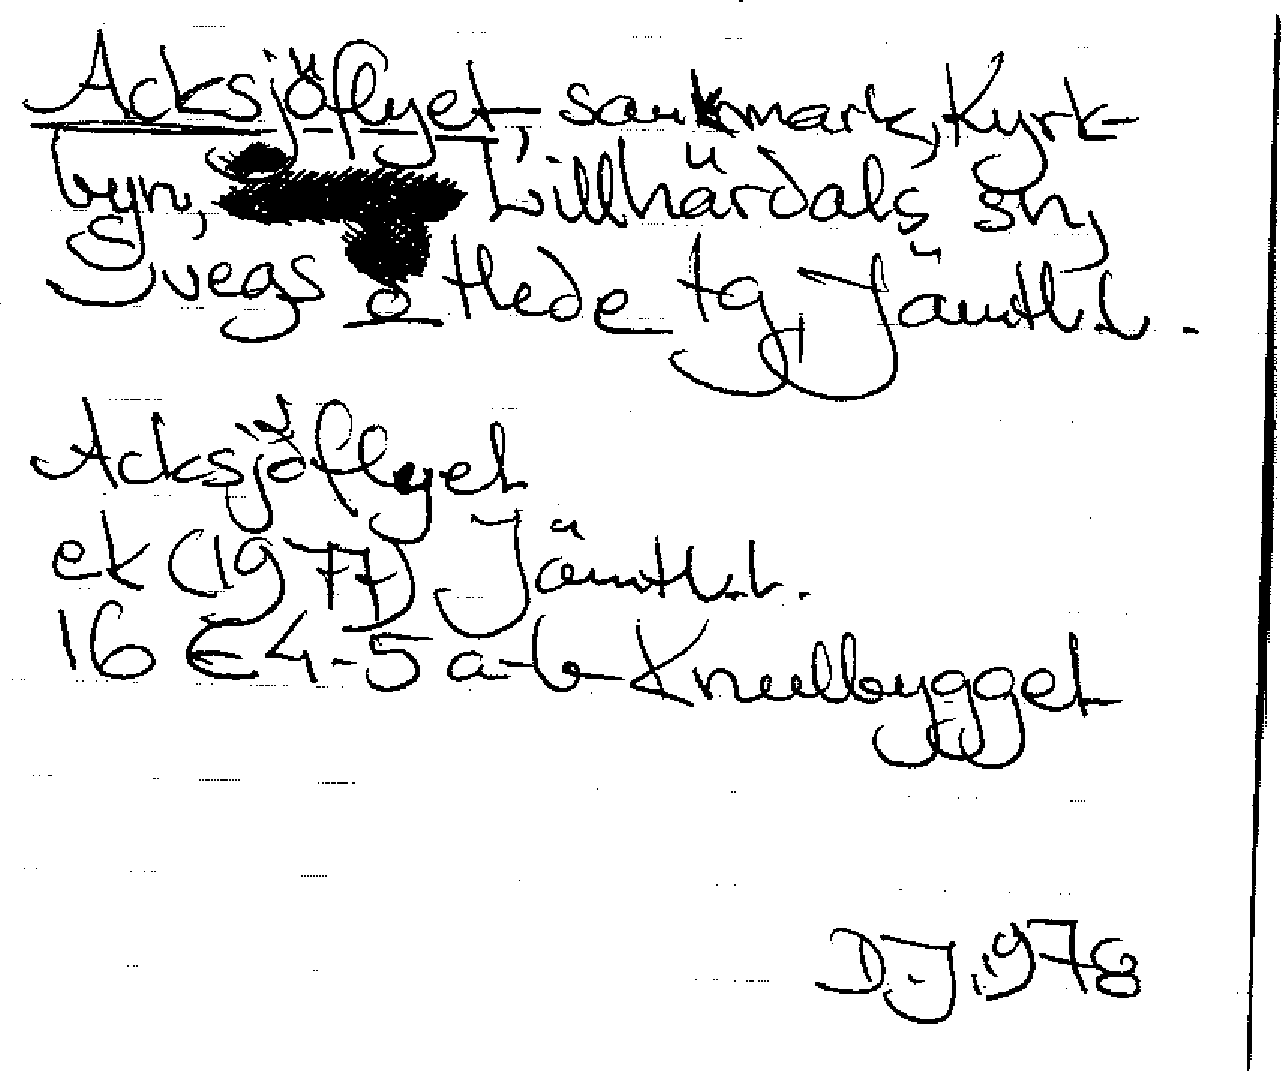 Acksjöflyet, sankmark, Kyrk-
byn, Lillhärdals sn,
Svegs o Hede tg, Jämtl.l.
Acksjöflyet
ek (1977) Jämtl.l.
16 E 4-5 a-b Knullbygget
DJ 1978